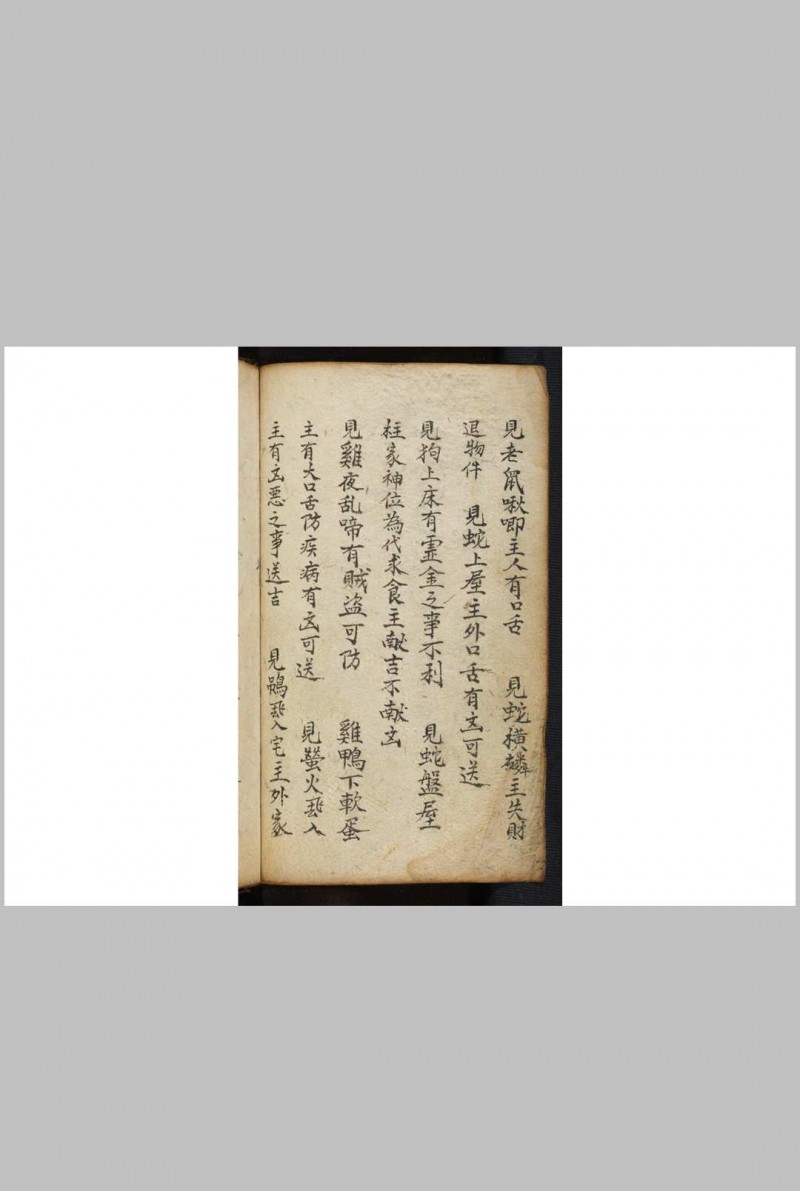 見老鼠啾即主人有口舌　見蛇橫轔主失財
退物件　見蛇上屋主外口舌有㐫可送
見狗上床有霊金之事不利　見蛇盤屋
柱家神位為代求食主献吉不献㐫
見雞夜乱啼有賊盜可防　雞鴨下軟蛋
主有大口舌防疾病有㐫可送　見螢火飛入
主有㐫悪之事送吉　見鵶飛入宅主外家